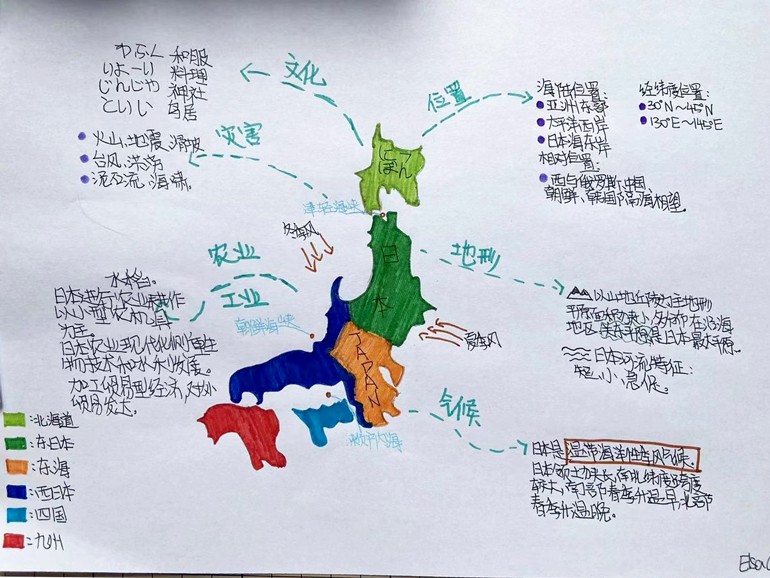 わふく 和服
料理
じんじゃ 神社
とりい 鸟居
文化
位置
海陆位置:
亚洲东部
太平洋西岸
日本海东岸
相对位置:
西与俄罗斯、中国、
朝鲜、韩国隔海相望。
经纬度位置:
30°N~45°N
130°E~145°E
灾害
火山、地震、滑坡
台风、洪涝
泥石流、海啸。
にっ
ぽん
津轻海峡
冬季风
日
本
地形
农业
工业
水稻。
日本进行农业耕作
以小型农机具
为主。
日本农业现代化侧重生
物技术和水水收库。
加工贸易型经济,对外
贸易发达。
朝鲜海峡
JAPAN
夏季风
以山地丘陵为主地形
地区,关东平原是日本最大平原。
日本河流特征:
短、小、急促。
气候
日本是温带海洋性季风气候。
日本领土狭长,南北纬度跨度
较大,南部春季升温早,北部
春季升温晚。
濑户内海
:北海道
:东日本
:东海
:西日本
:四国
:九州